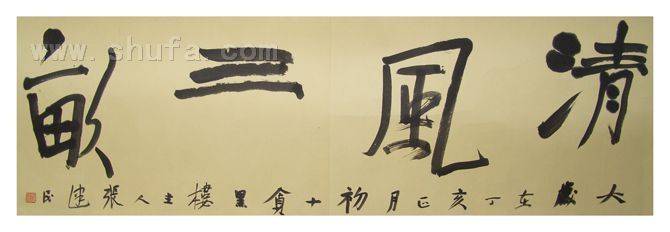 清風三畝
大歲在丁亥正月初十貪黑樓主人張建民
www.shufa.com